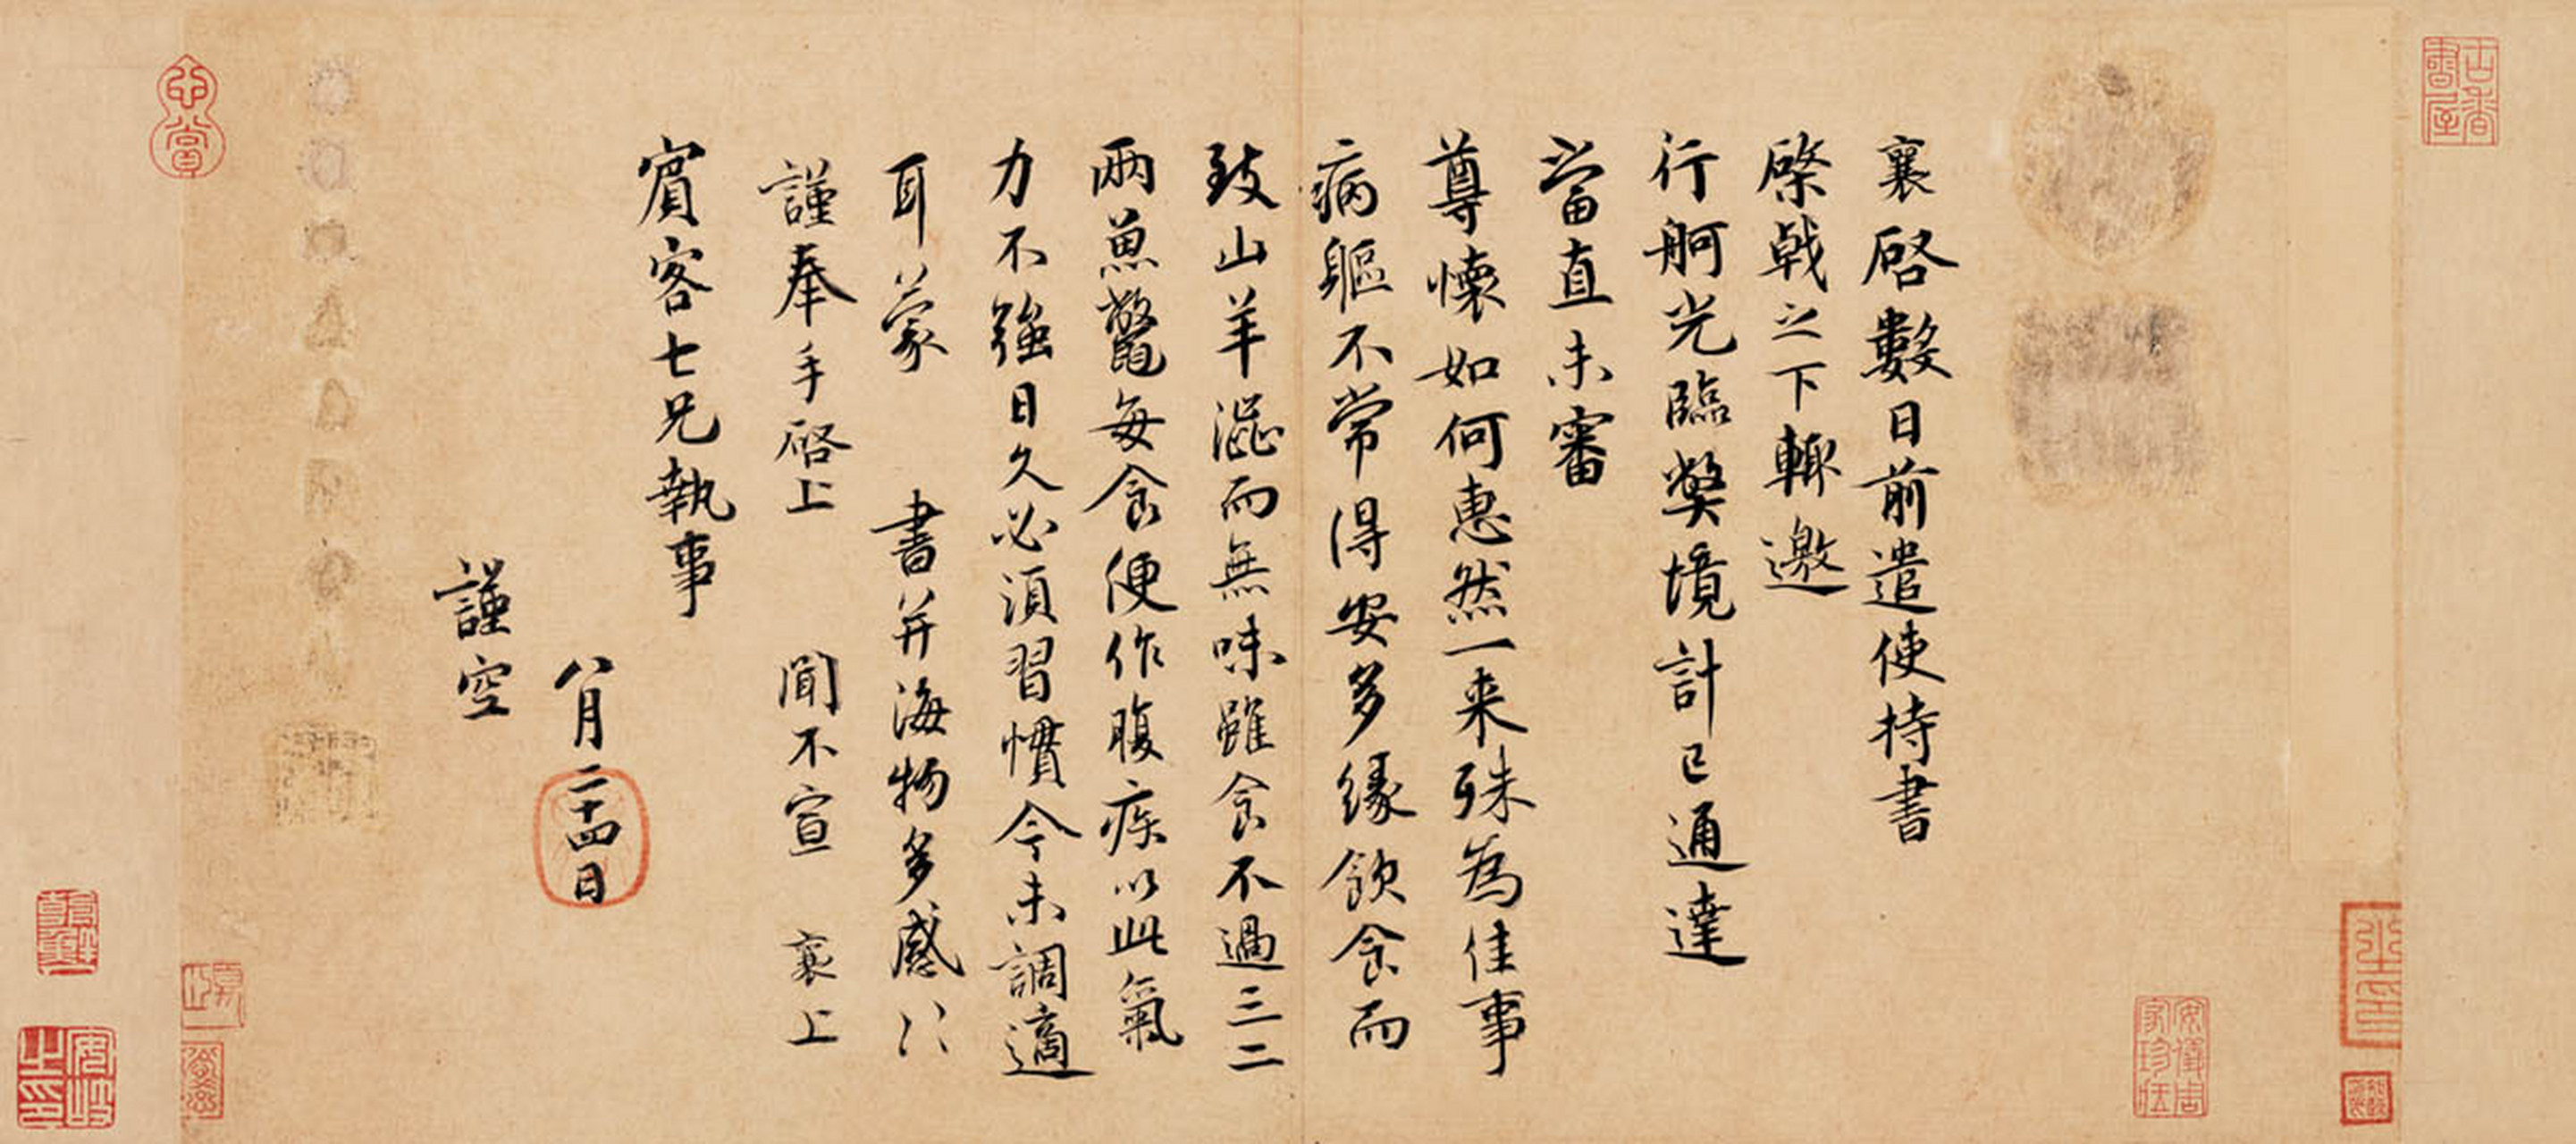 襄啓數日前遣使持書
棨戟之下輙邀
行舸光臨獘境計已通達
當直未審
尊懷如何惠然一来殊為佳事
病軀不常得安多緣飲食而
致山羊澀而無味雖食不過三二
兩魚鱉每食便作腹疾以此氣
力不強日久必須習慣今未調適
耳蒙 書并海物多感〻
謹奉手啓上 聞不宣 襄上
賔客七兄執事
八月二十四日
謹空
心賞
古香書屋
安儀周家珍藏
安岐之印